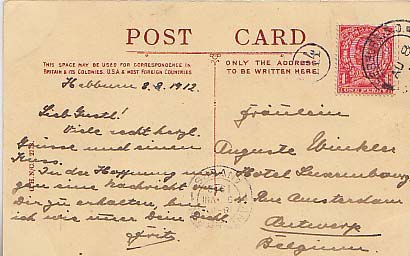 POST CARD
THIS SPACE MAY BE USED FOR CORRESPONDENCE IN
BRITAIN & ITS COLONIES, U.S.A & MOST FOREIGN COUNTRIES.
ONLY THE ADDRESS
TO BE WRITTEN HERE.
Hebburn 8.8.1912.
Lieb Gustl!
Viele recht herzl.
Grüsse und einen
Kuss.
In der Hoffnung
gen eine Nachricht
Dir zu erhalten, bin
ich wie immer Dein
Fritz
Fräulein
Auguste Winkler
Hotel Luxembourg
Rue Amsterdam
Antwerp
Belgium.
ONE PENNY